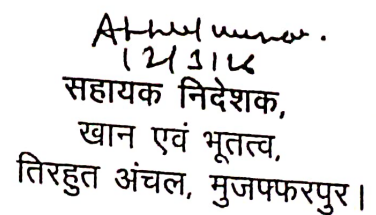 12/3/26
सहायक निदेशक,
खान एवं भूतत्व,
तिरहुत अंचल, मुजफ्फरपुर।